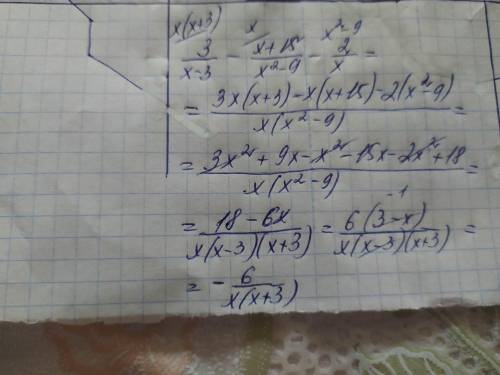 x(x+3) x x²-9
3/(x-3) - (x+15)/(x²-9) - 2/x =
= (3x(x+3)-x(x+15)-2(x²-9))/(x(x²-9)) =
= (3x²+9x-x²-15x-2x²+18)/(x(x²-9)) =
= (18-6x)/(x(x-3)(x+3)) = (6(3-x))/(x(x-3)(x+3)) = -1
= - 6/(x(x+3))